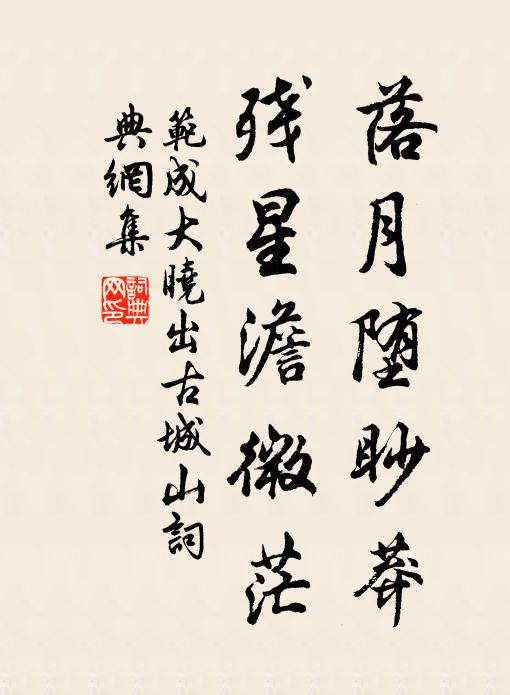 落月堕眇莽
残星澹微茫
範成大曉出古城山詞
典網集
詞典网印